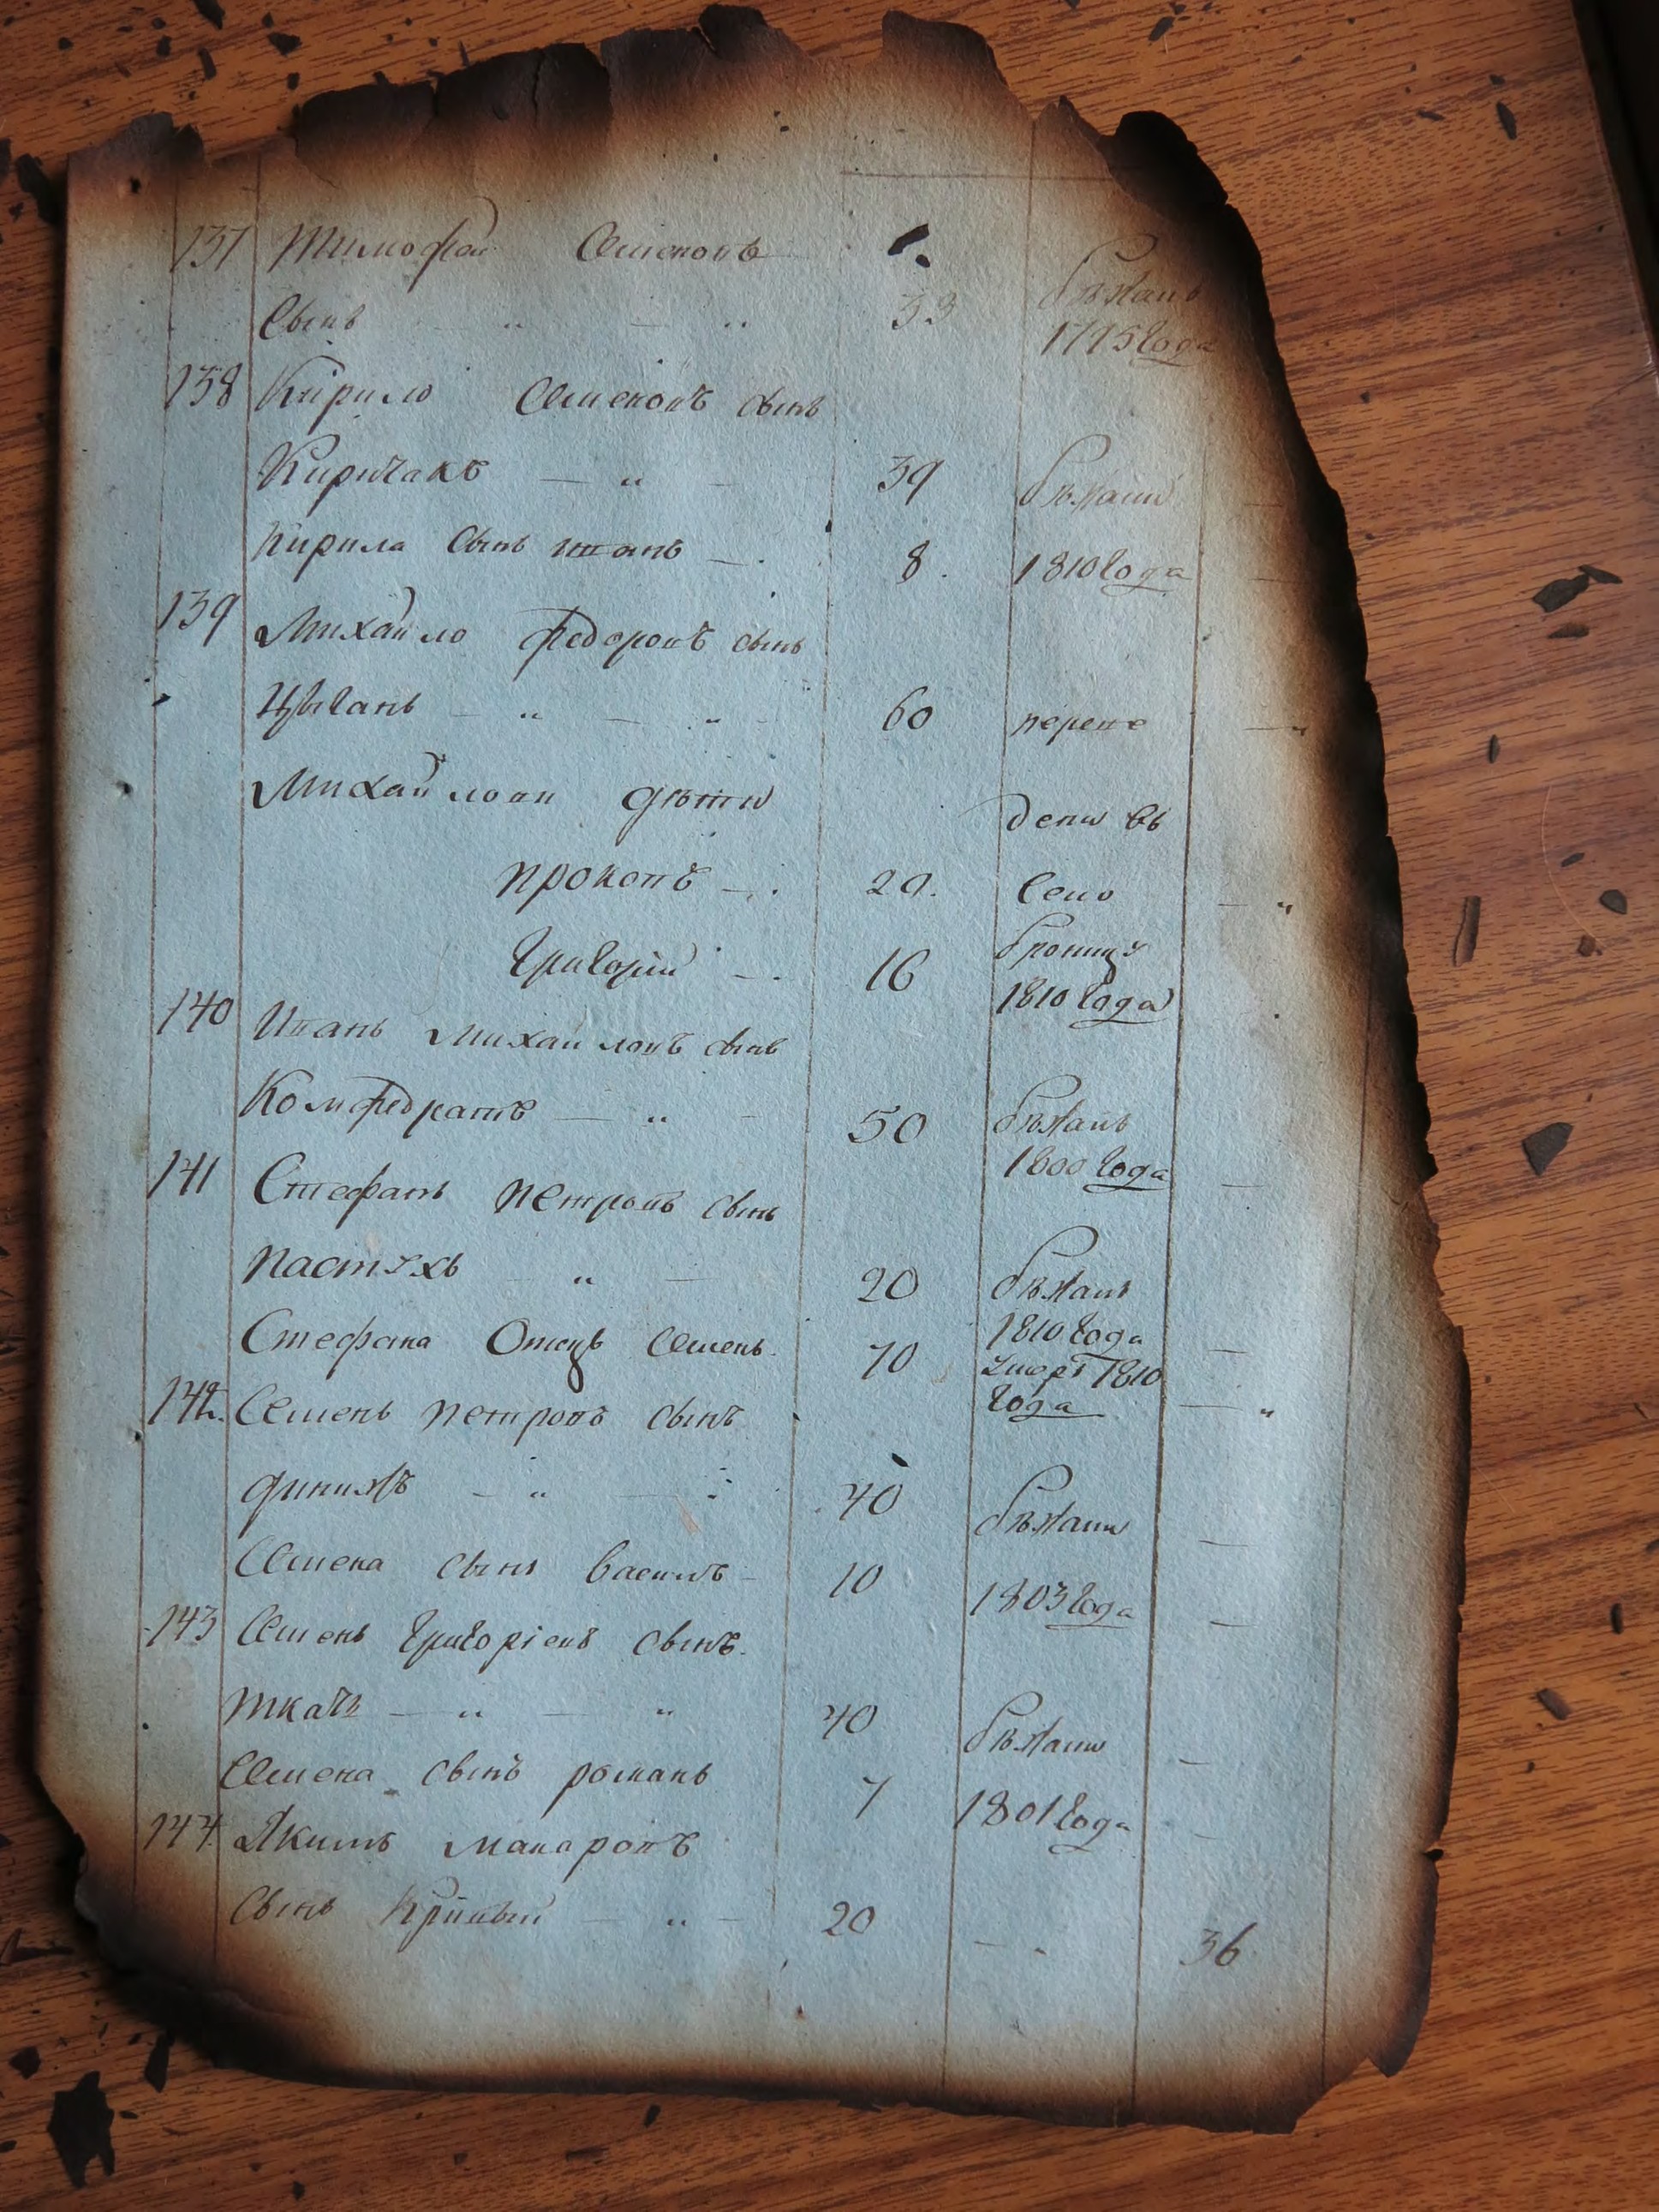 137 Тимофей Семеновъ
сынъ 33 бѣжалъ
1795 года
138 Кирило Семеновъ сынъ
Киричакъ 39 бѣжали
Кирила сынъ Иванъ 8. 1810 года
139 Михайло Федоровъ сынъ
Цыганъ 60 переве
Михайловы дѣти дены въ
Прокопъ 20. село
Григорій 16 Броницу
1810 года
140 Иванъ Михайловъ сынъ
Комфедратъ 50 бѣжалъ
1800 года
141 Стефанъ Петровъ сынъ
Пастухъ 20 бѣжалъ
1810 года
Стефана Отецъ Семенъ 70 умеръ 1810
года
142. Семенъ Петровъ сынъ
40 бѣжали
Семена сынъ Василъ 10 1803 года
143 Семенъ Григоріевъ сынъ
Ткачъ 40 бѣжали
Семена сынъ Романъ 7 1801 года
144 Якимъ Макаровъ
сынъ Кривый 20 36